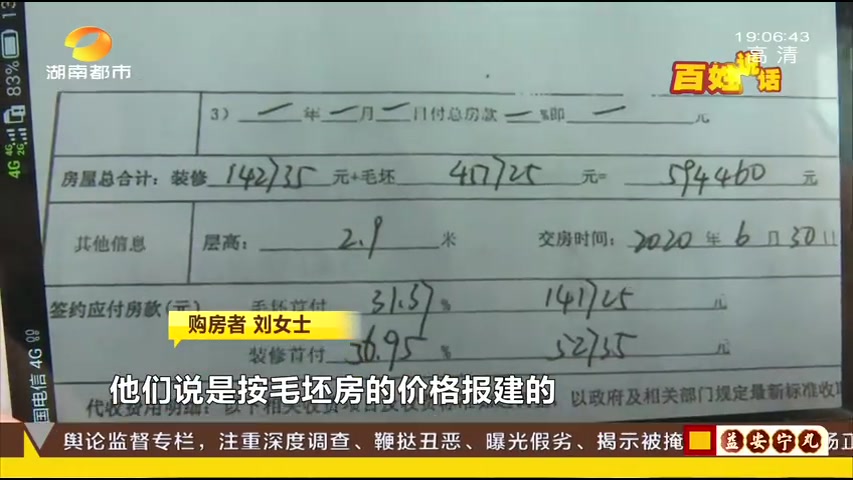 19:06:43
高清
湖南都市
百姓说话
83%
4G
4G
2G
国电信 4G
3) 一 年 一 月 一 日付总房款 一 %即 一 元
房屋总合计: 装修 142735 元+毛坯 451725 元= 594460 元
其他信息 层高: 2.9 米 交房时间: 2020 年 6 月 30 日
签约应付房款(元) 毛坯首付 31.37 % 141725 元
装修首付 36.95 % 52735 元
购房者 刘女士
他们说是按毛坯房的价格报建的
代收费用明细: 以下相关收费项目及收费标准 以政府及相关部门规定最新标准收
舆论监督专栏，注重深度调查、鞭挞丑恶、曝光假劣、揭示被掩
益安宁丸
扬正